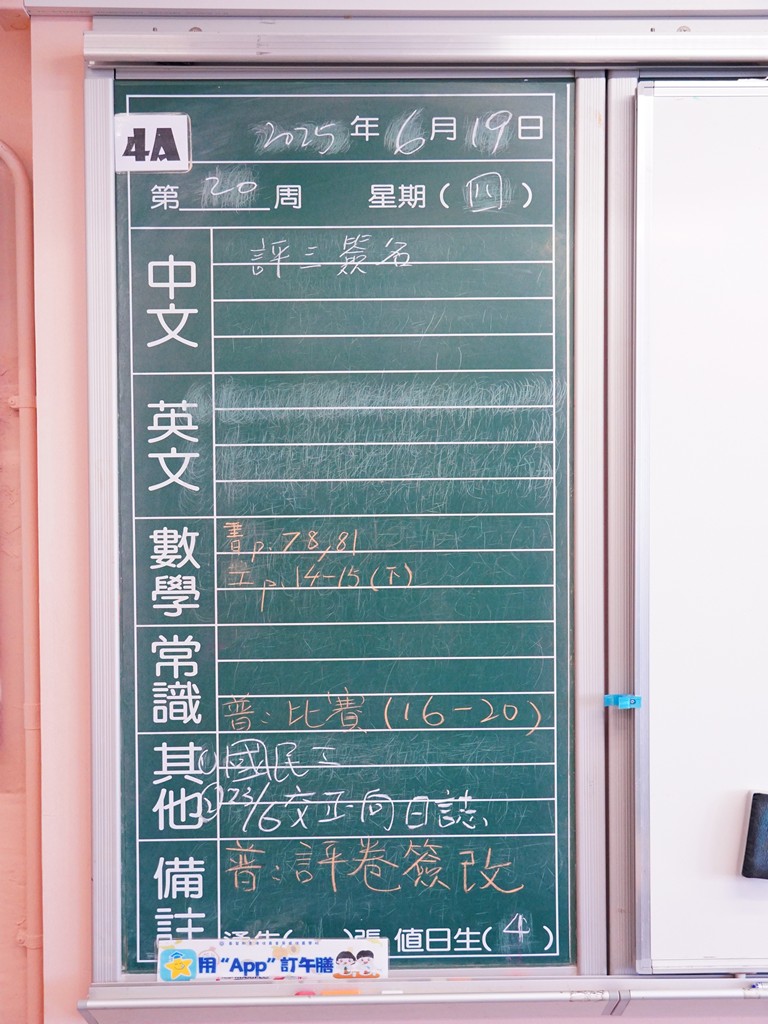 4A
2025年6月19日
第20周 星期(四)
中文
評三簽名
英文
數學
書p.78,81
工p.14-15(下)
常識
普:比賽(16-20)
其他
①國民工
②23/6交正向日誌
備註
普:評卷簽改
通告( )張 值日生(4)
用“App”訂午膳